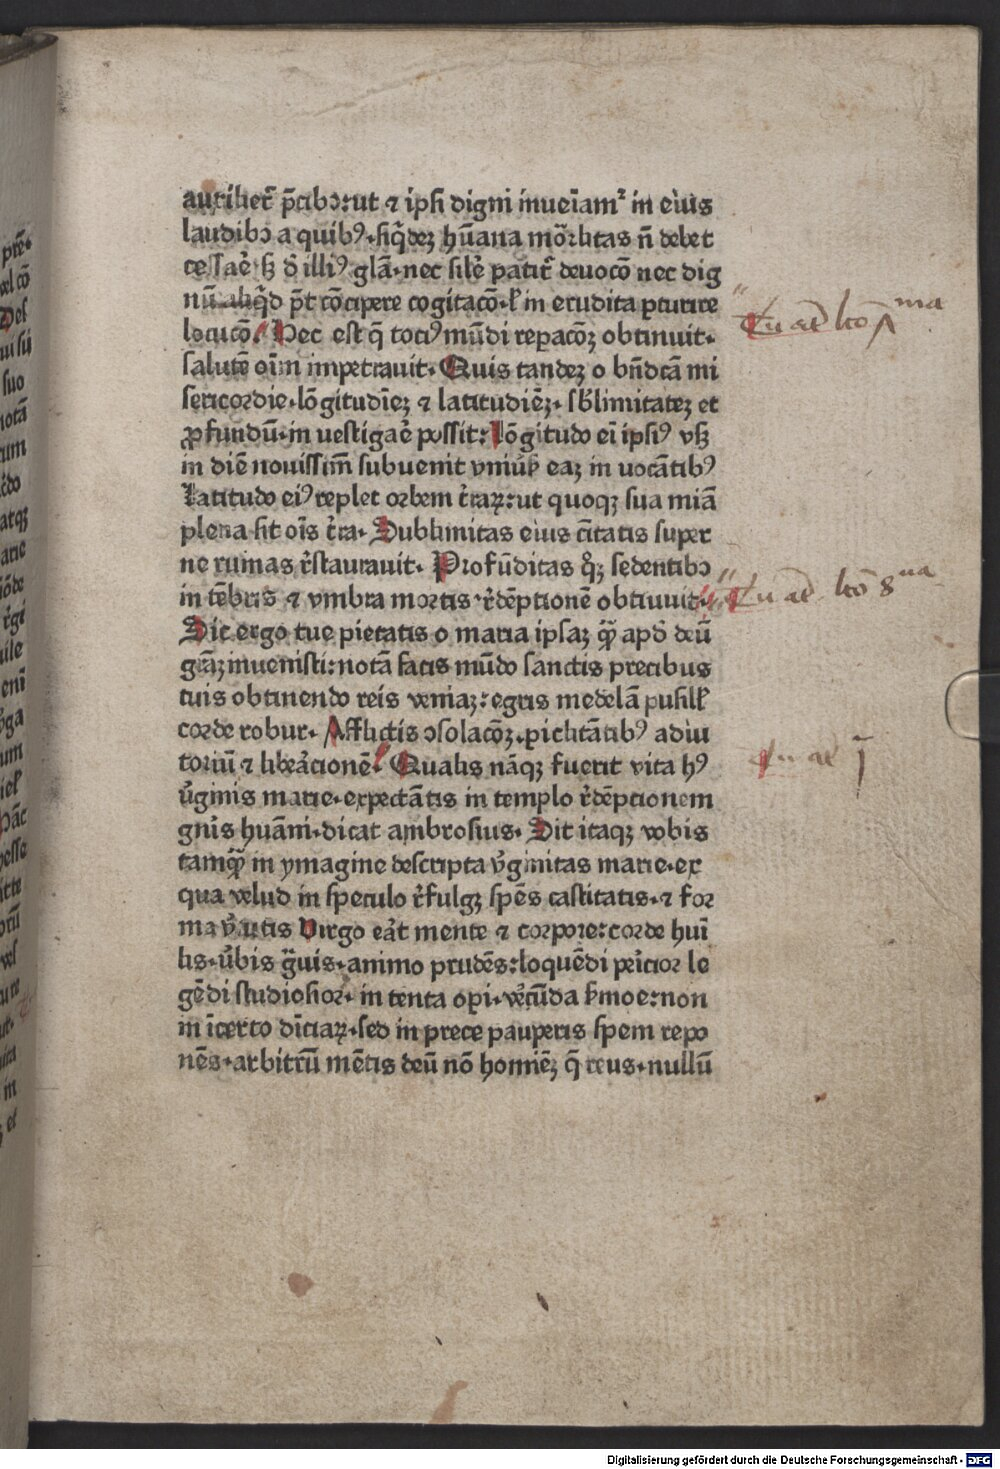 auxiliet᷑ p̄cibꝫ: ut ⁊ ipsi digni inueīamᷣ in eius
laudibꝫ a quibꝰ. siq̄deꝫ hūana mōꝛlitas n̄ debet
cessaē sꝫ d̄ illiꝰ glā. nec silē patit᷑ deuocō nec dig
nū aliq̄d p̄t cōcipere cogitacō. ł in erudita ꝑturire
locucō. Hec est q̄ tociꝰ mūdi reꝑacōꝫ obtinuit.
salutē oīm impetrauit. Quis tandeꝫ o bn̄dcā mi
sericordie. lōgitudīeꝫ ⁊ latitudīēꝫ. sblimitateꝫ et
ꝓfundū. in uestigaē possit: Lōgitudo eī ipsiꝰ vsꝫ
in diē nouissim̄ subuenit vniūs̄ eaꝫ in uocātibꝰ
Latitudo eiꝰ replet orbem t̄raꝝ: ut quoqꝫ sua miā
plena sit oīs t̄ra. Sublimitas eius c̄itatis super
ne ruinas r̄staurauit. Profūditas q̄ꝫ sedentibꝫ
in tēbris ⁊ vmbra mortis r̄dēptionē obtinuit.
Sit ergo tue pietatis o maria ipsaꝫ qᷓꝫ apd̄ deū
grāꝫ inuenisti: notā facis mūdo sanctis precibus
tuis obtinendo reis veniaꝫ: egris medelā pusill̄
corde robur. Afflictis ꝯsolacōꝫ. ꝑiclitātibꝰ adiu
toriū ⁊ libeāciōnē. Qualis nāqꝫ fuerit vita hꝰ
ūginis marie. expectātis in templo r̄dēptionem
gn̄is huāni. dicat ambrosius. Sit itaqꝫ vobis
tamqᷓꝫ in ymagine descripta ūginitas marie. ex
qua velud in speculo r̄fulgꝫ spēs castitatis. ⁊ for
ma ūtutis Virgo eāt mente ⁊ corpore: corde huī
lis. ūbis gᷓuis. animo prudēs: loquēdi pēicior le
gēdi studiosior. in tenta oꝑi. vēcūda s̄moe: non
in īcerto dīciaꝝ. sed in prece pauperis spem repo
nēs. arbitrū mētis deū nō homīeꝫ q̄ reus. nullū
Tu aū lcō ma
Tu aū lcō ua
Tu aū
Digitalisierung gefördert durch die Deutsche Forschungsgemeinschaft - DFG